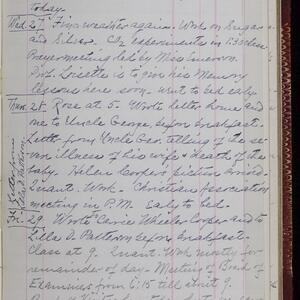 today.
Wed. 27. Fine weather again. Work on Sugar
and Silver. CO2 experiments in 1:30 class
Prayer meeting led by Miss Emerson.
Prof. Loisette is to give his Memory
lessons here soon. Went to bed early.
Thur. 28. Rose at 5. Wrote letter home and
me to Uncle George, before breakfast.
Letter from Uncle Geo. telling of the se-
vere illness of his wife & death of the
baby. Helen Cooper's picture arrived
Quant. Work. Christian Association
meeting in P.M. Early to bed.
29. Wrote Carrie Wheeler Cooper and to
Lilla A. Patterson before breakfast.
Class at 9. Quant. Work mostly for
remainder of day. Meeting of Board of
Examiners from 6:15 till about 9.
Letter from
Lilla A. Patterson.